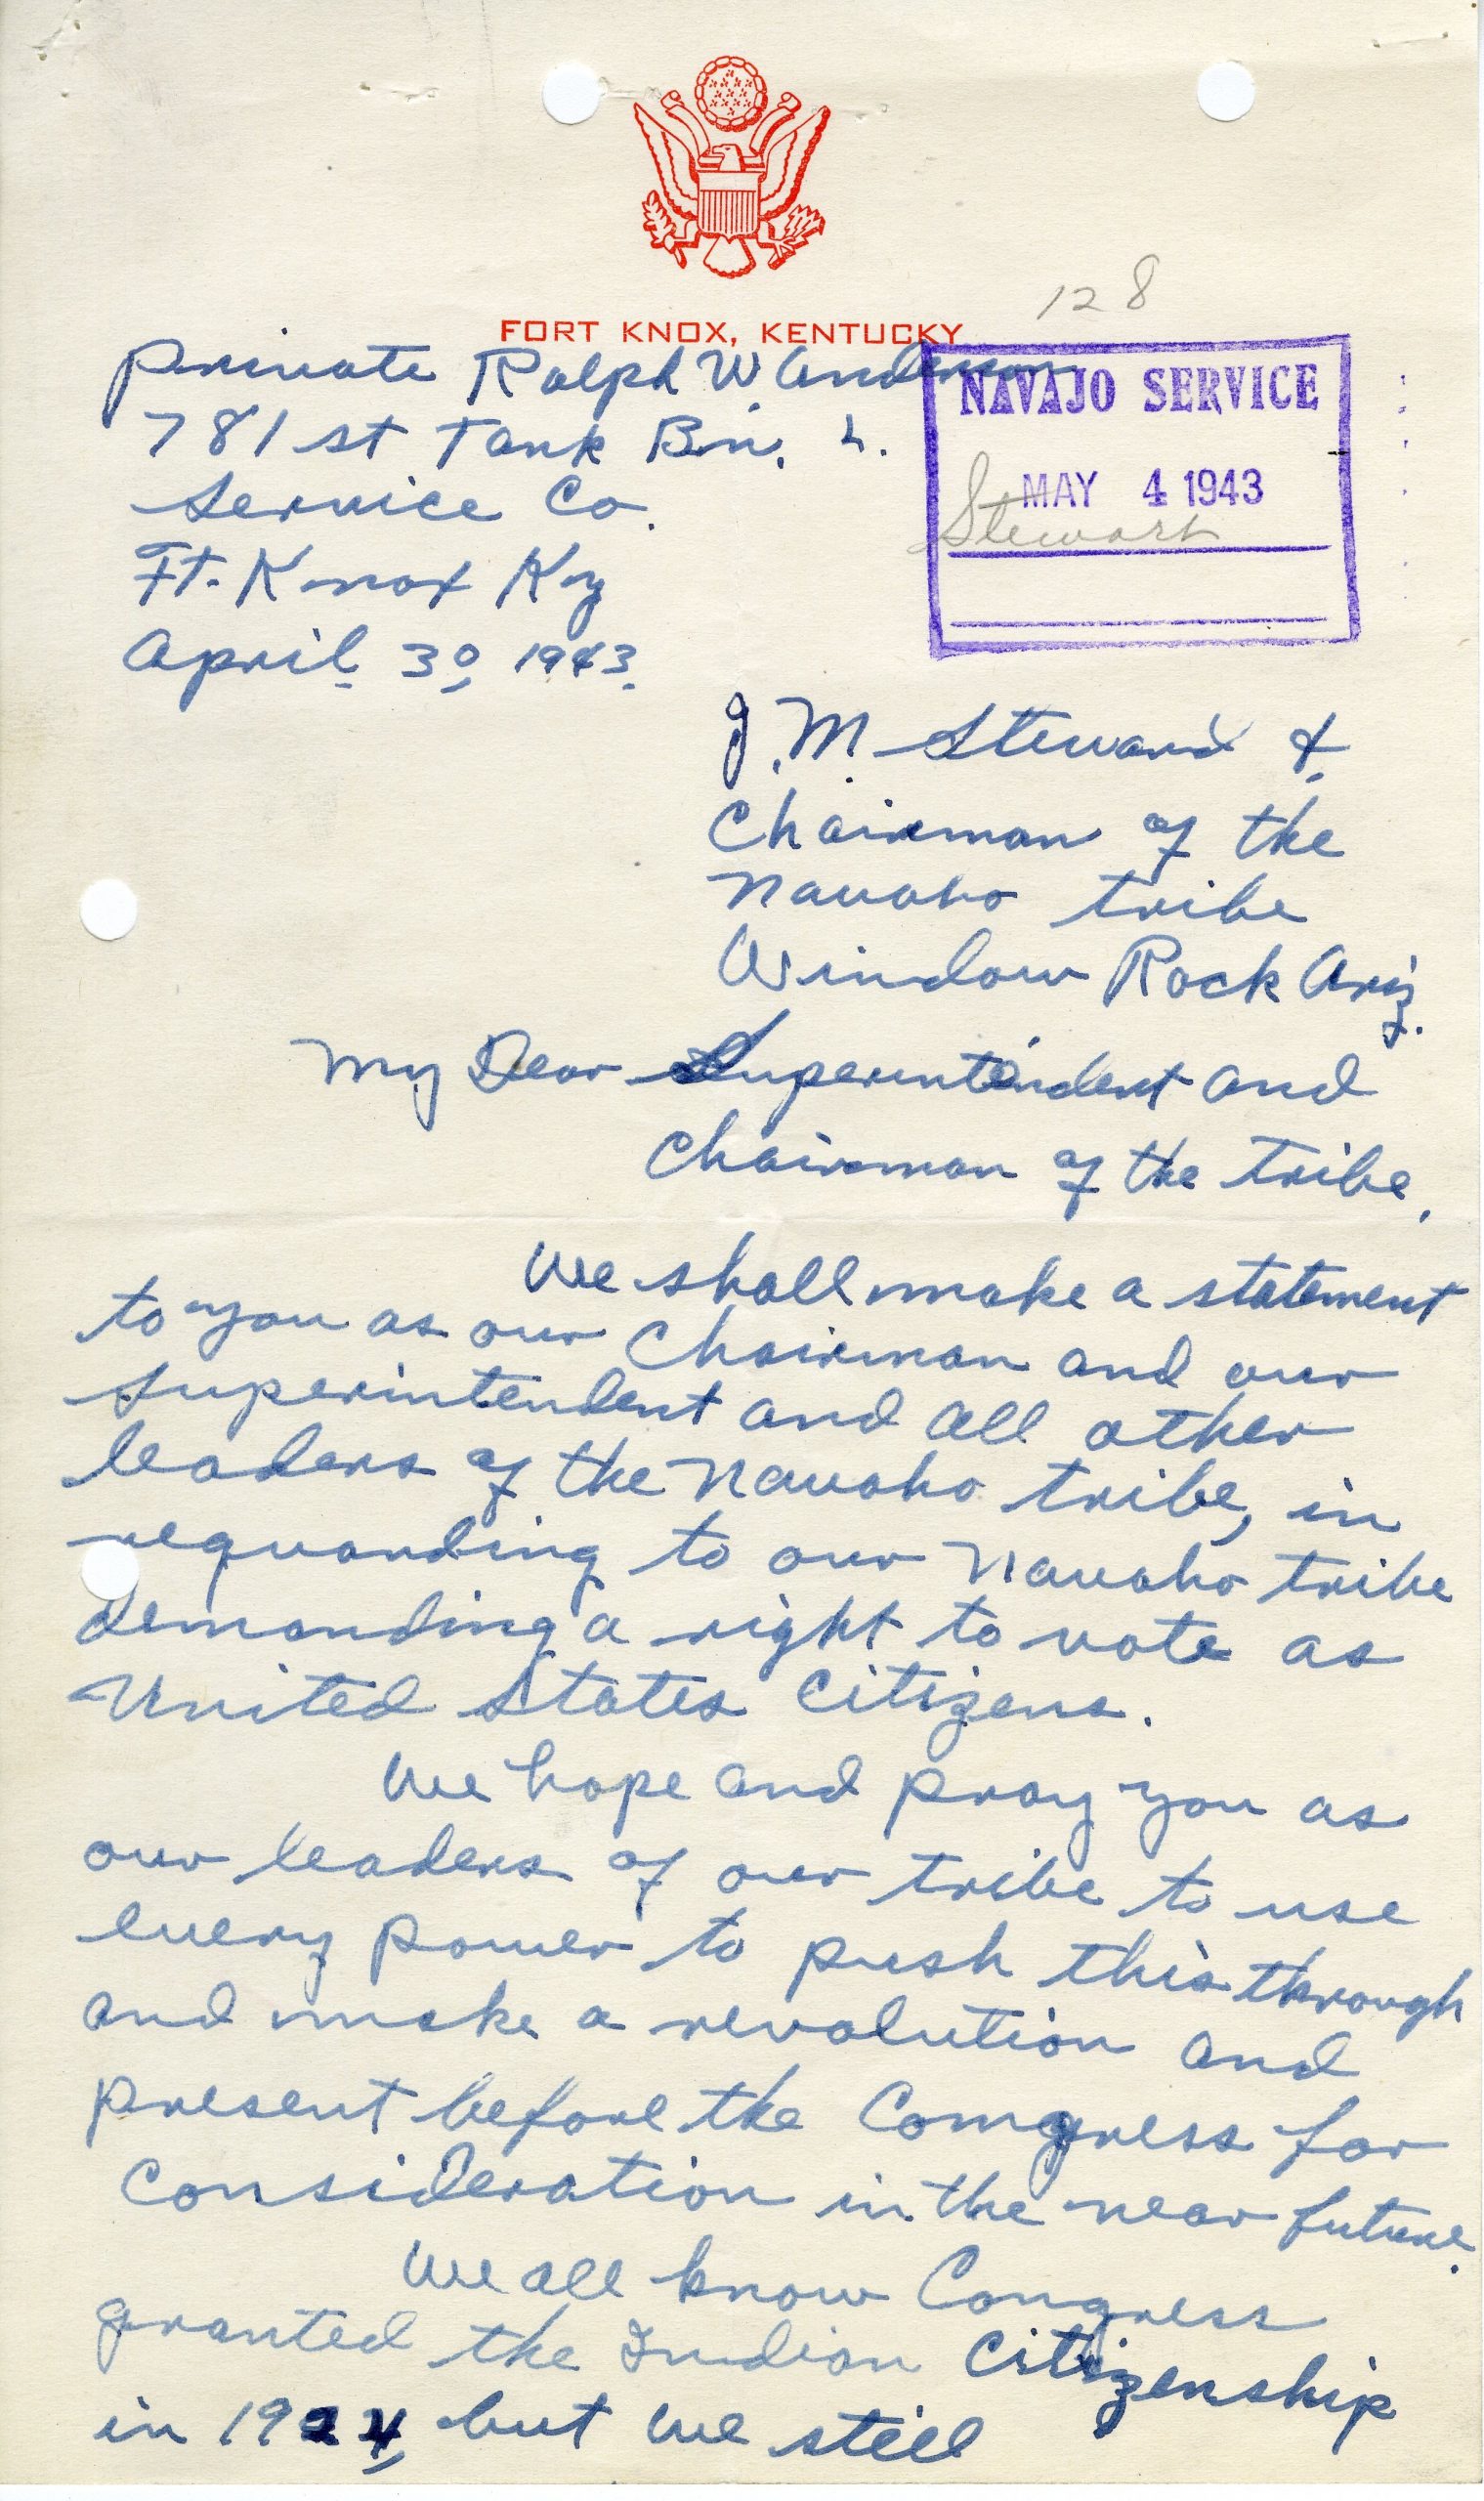 128
FORT KNOX, KENTUCKY
Private Ralph W. Anderson
781st Tank Bn. L.
Service Co.
Ft. Knox Ky
April 30, 1943.
NAVAJO SERVICE
MAY 4 1943
Stewart
J. M. Steward &
Chairman of the
Navaho tribe
Window Rock Ariz.
My Dear Superintendent and
Chairman of the tribe,
We shall make a statement
to you as our Chairman and our
Superintendent and all other
leaders of the Navaho tribe, in
reguarding to our Navaho tribe
demanding a right to vote as
United States Citizens.
We hope and pray you as
our leaders of our tribe to use
every power to push this through
and make a revolution and
present before the Congress for
consideration in the near future.
We all know Congress
granted the Indian Citizenship
in 1924, but we still